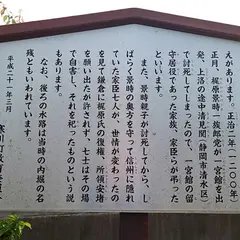 えがあります。正治二年(一二〇〇年)
正月、梶原景時一族郎党が一宮館を出
発、上洛の途中清見関(静岡市清水区)
で討死してしまったので、一宮館の留
守居役であった家族、家臣らが弔った
また、景時親子が討死してから、し
ばらく景時の奥方を守って信州に隠れ
ていた家臣七人が、世情が変わったの
を見て鎌倉に梶原氏の復権、所領安堵
を願い出たが許されず、七士はその場
で自害し、それを祀ったものという説
もあります。
なお、後ろの水路は当時の内堀の名
残ともいわれています。
平成二十一年三月
寒川町教育委員